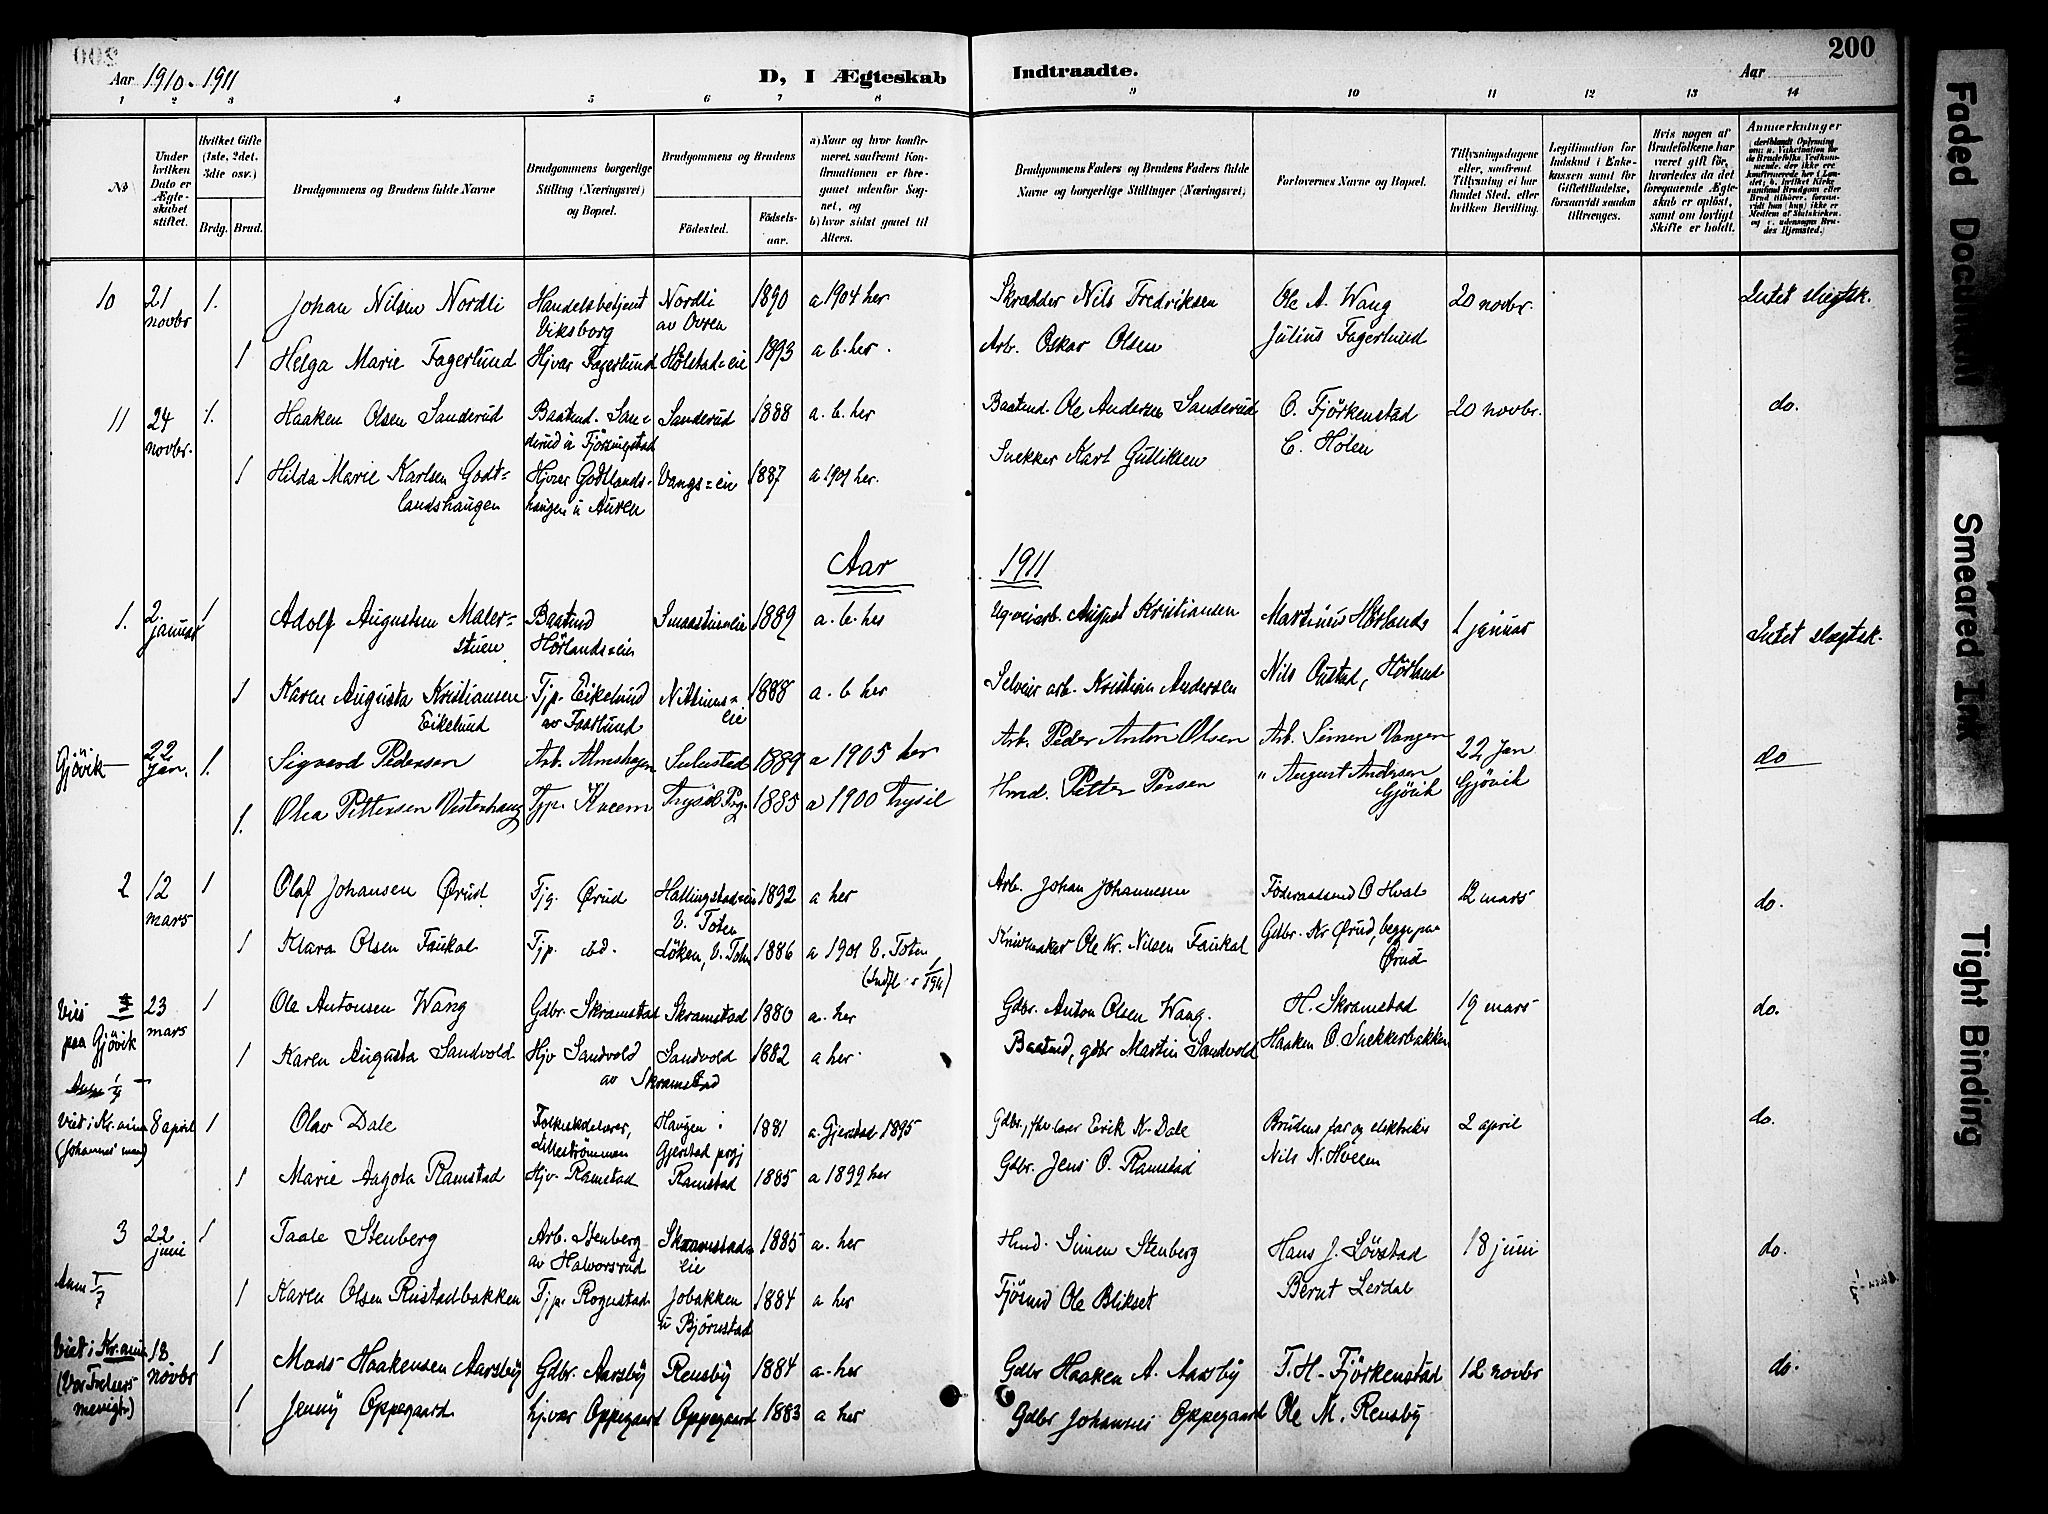 Aar 1910-1911
D, I Ægteskab
Indtraadte.
Aar
200
1 2 3 4 5 6 7 8 9 10 11 12 13 14
No
Under hvilken Dato er Ægteskabet stiftet.
Hvilket Gifte (1ste, 2det, 3die osv.)
Brdg. Brud.
Brudgommens og Brudens fulde Navne
Brudgommens borgerlige Stilling (Næringsvei) og Bopæl.
Brudgommens og Brudens
Fødested.
Fødselsaar.
a) Naar og hvor konfirmeret, saafremt Konfirmationen er foregaaet udenfor Sognet, og
b) hvor sidst gaaet til Alters.
Brudgommens Faders og Brudens Faders fulde Navne og borgerlige Stillinger (Næringsvei)
Forlovernes Navne og Bopæl.
Tillysningsdagene eller, saafremt Tillysning ei har fundet Sted, efter hvilken Bevilling.
Legitimation for Indskud i Enkekassen samt for Giftetilladelse, forsaavidt saadan tiltrænges.
Hvis nogen af Brudefolkene har været gift før, hvorledes da det foregaaende Ægteskab er opløst, samt om lovligt Skifte er holdt.
Anmerkninger
10 21 novbr 1. Johan Nilsen Nordli Handelsbetjent Viksborg Nordli av Ovren 1890 a 1904 her Skrædder Nils Fredriksen Ole A. Wang 20 novbr. Intet slægtsk.
1 Helga Marie Fagerlund Hjvær Fagerlund Hølstad-eie 1893 a. b. her Arb. Oskar Olsen Julius Fagerlund
11 24 novbr. 1. Haaken Olsen Sanderud Baatsmd. Sanderud Sanderud 1888 a. b. her Ole Andersen Sanderud O. Fjørkenstad C. Holen 20 novbr. do.
1 Hilda Marie Karlsen Godtlandshaugen Hjvær Godtlandshaugen u Auren Vangs-eie 1887 a 1901 her. Snekker Karl Gulliksen
Aar 1911
1. 2 januar 1 Adolf Augustsen Malerstuen Hørlands-eie 1889 a. b. her August Kristiansen Martinius Hørland 1 januar Intet slægtsk.
1 Karen Augusta Kristiansen Eikelund Tjp. Eikelund av Faarlund 1888 a. b her Selveier arb. Kristian Andersen Nils Rustad, Hørland
Gjøvik 22 Jan. 1. Sigvard Pedersen Arb. Almshagen 1889 a 1905 her Arb. Peder Anton Olsen Arb. Simen Vangen 22 Jan Gjøvik do
1. Olea Pettersen Vesterhaug Tjp. Kveem Trysil Prg. 1885 a 1900 Trysil Hmd. Petter Persen " August Andersen Gjøvik
2 12 mars 1 Olaf Johansen Ørud Tjg. Ørud V. Toten 1892 a her Arb. Johan Johannesen Føderaadsmd O Hval 12 mars do.
1 Klara Olsen Faukal Tjp. ibd. Løken, V. Toten 1886 a 1901 V. Toten Knivmaker Ole Kr. Nilsen Faukal Gdbr. Kr Ørud, begge paa Ørud
Viet paa Gjøvik 23 mars 1 Ole Antonsen Wang Gdbr. Skramstad Skramstad 1880 a. her Gdbr. Anton Olsen Wang. H. Skramstad 19 mars do.
1 Karen Augusta Sandvold Hjv Sandvold Sandvold av Skramstad 1882 a her Baatsmd, gdbr Martin Sandvold Haaken O. Snekkerbakken
Viet i Kr.ania (Johannes' men) 8 april 1 Olav Dale Lillestrømmen Haugen i Gjerstad prgj 1881 a. Gjerstad 1895 Gdbr., fhv. lærer Eirik N. Dale Brudens far og elektriker Nils N. Hveem 2 april do.
1 Marie Aagota Ramstad Hjv. Ramstad Ramstad 1885 a 1899 her Gdbr. Jens O. Ramstad
3 22 juni 1 Taale Stenberg Arb. Stenberg av Halvorsrud Skramstad eie 1885 a. her Hmd. Simen Stenberg Hans J. Løvstad 18 juni do.
1 Karen Olsen Rustadbakken Tjp. Rognstad Jobakken u Bjørnstad 1884 a her Ole Blikset Bernt Lerdal
Viet i Kr.ania (Vor Frelsers menigh.) 18 novbr 1 Mads Haakensen Aarsby Gdbr. Aarsby Rensby 1884 a. her Gdbr Haaken A. Aarsby T. H. Fjørkenstad 12 novbr do.
1 Jenny Oppegaard hjvær Oppegaard Oppegaard 1883 a her Gdbr Johannes Oppegaard Ole M. Rensby
Faded Document
Smeared Ink
Tight Binding